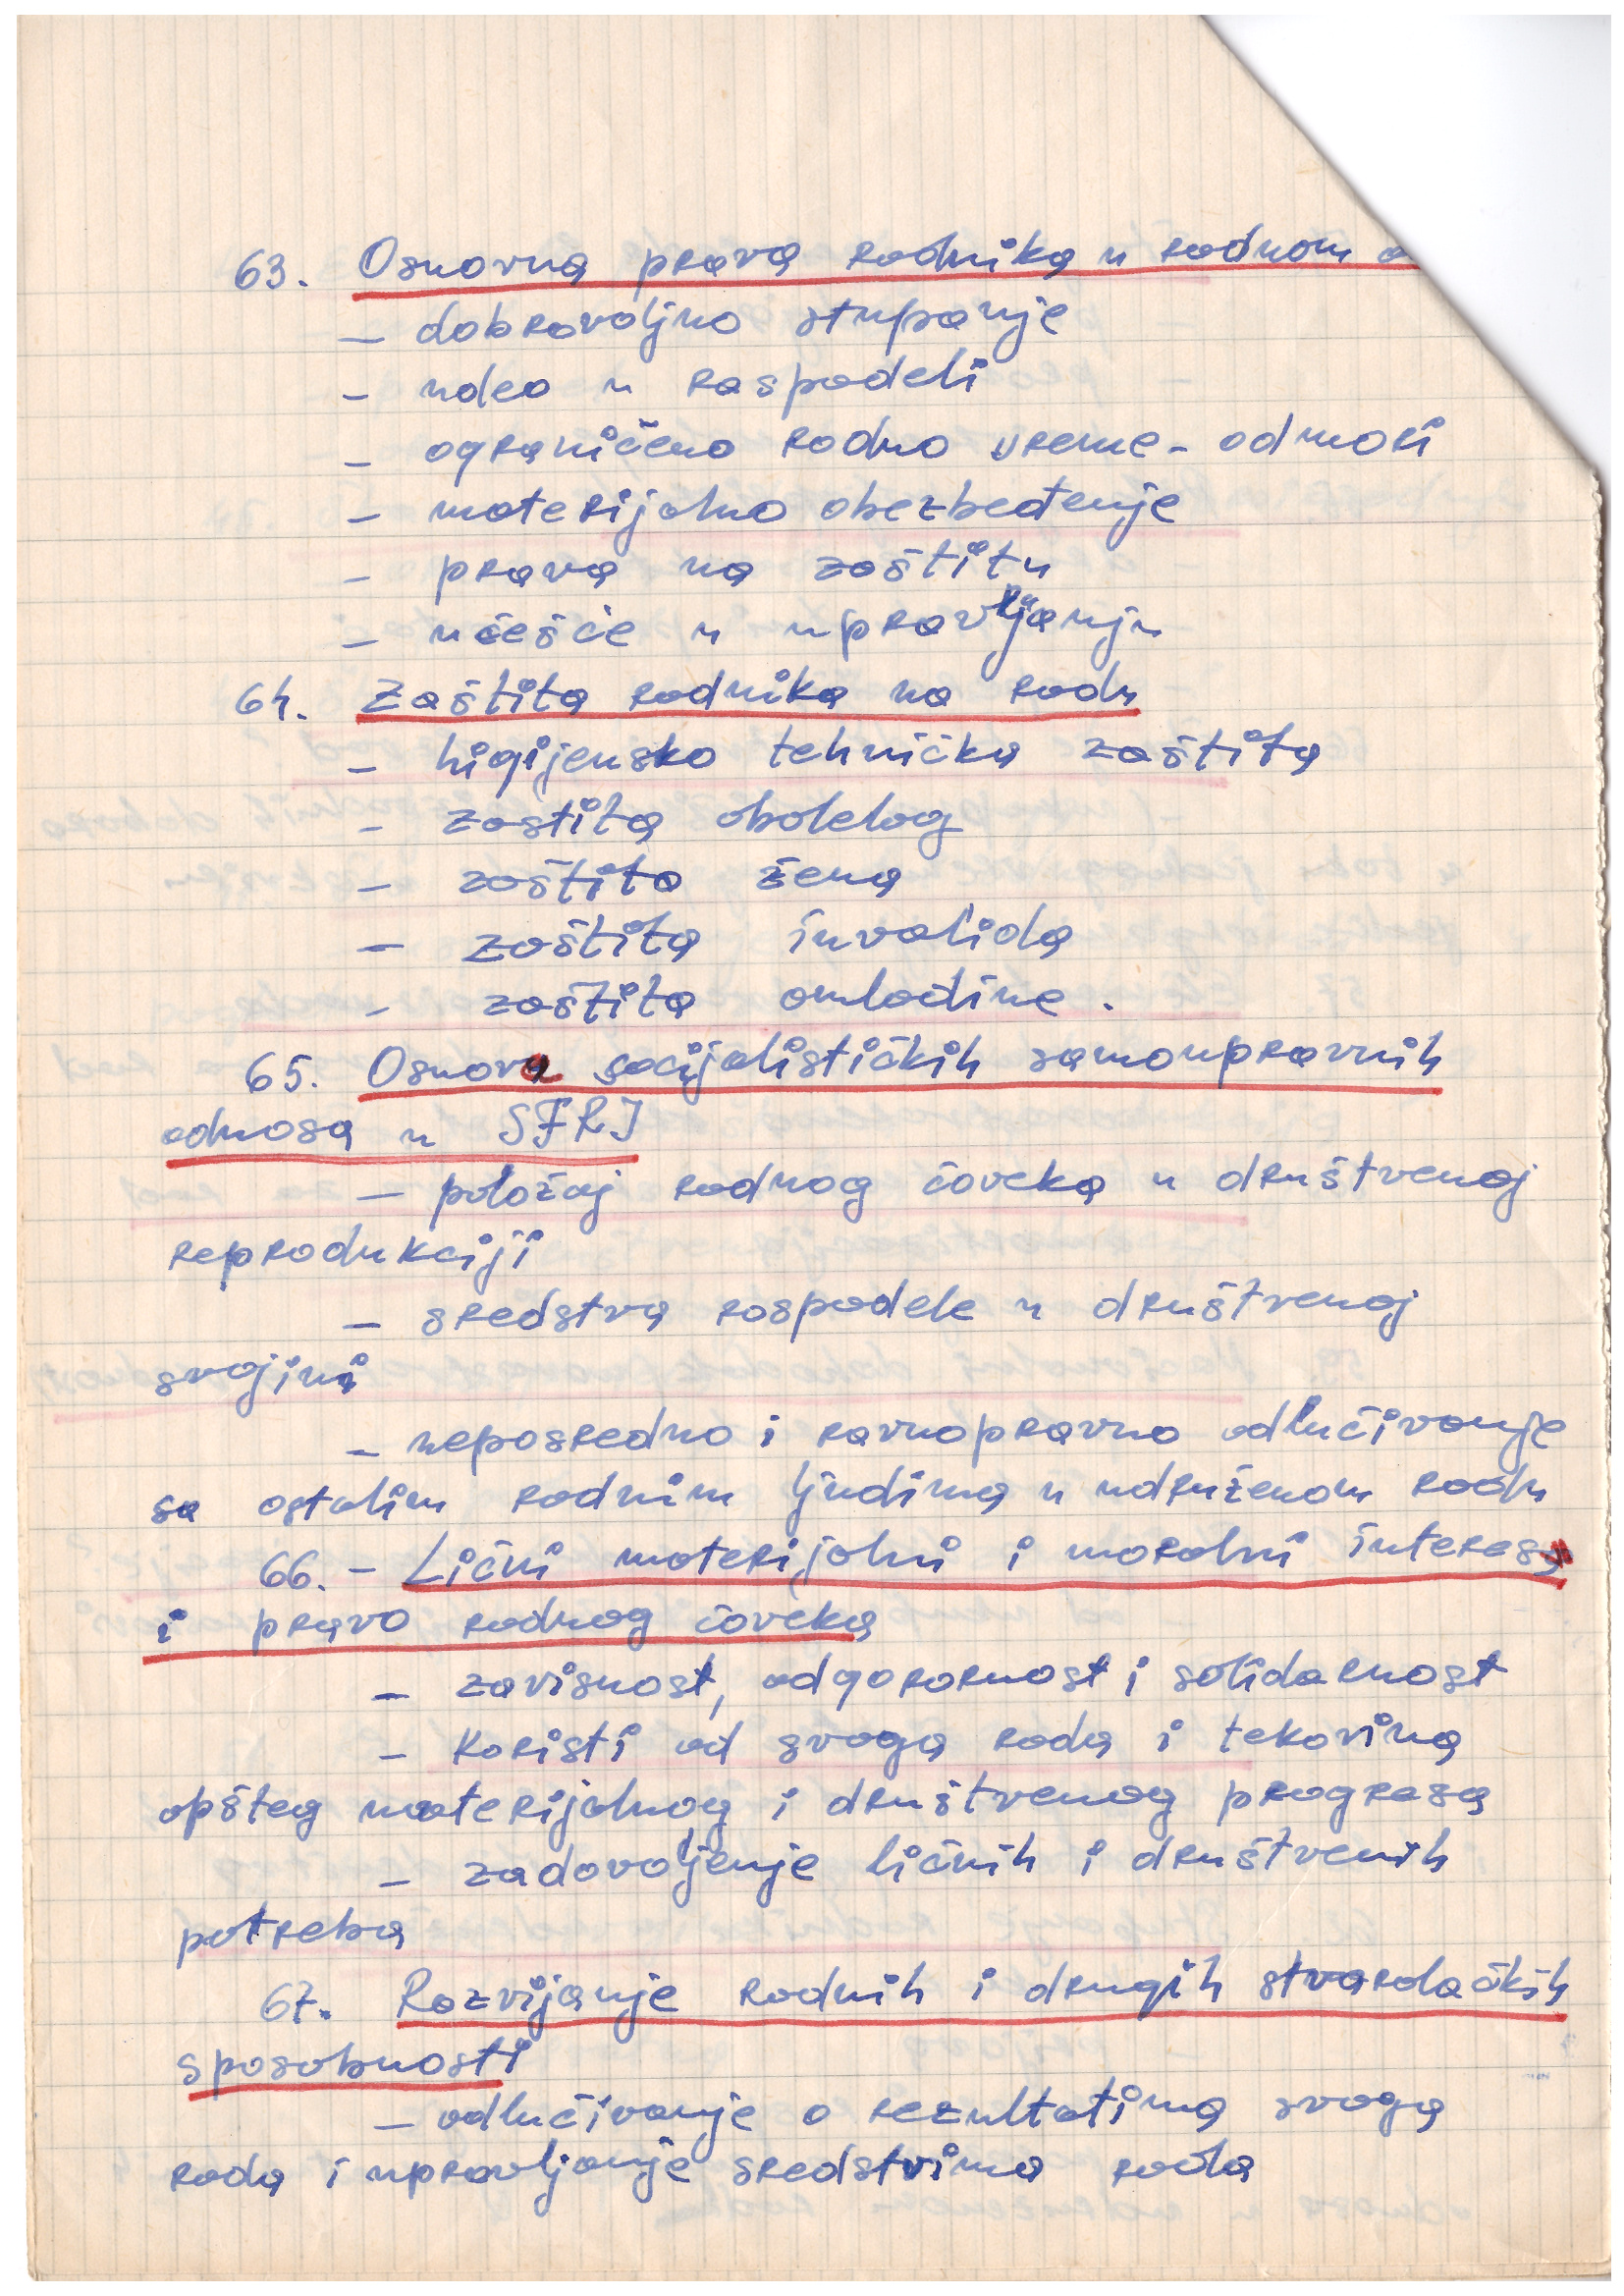 63. Osnovna prava radnika u radnom o
– dobrovoljno stupanje
– udeo u raspodeli
– ograničeno radno vreme – odmori
– materijalno obezbeđenje
– prava na zaštitu
– učešće u upravljanju
64. Zaštita radnika na radu
– higijensko tehnička zaštita
– zastita obolelog
– zaštita žena
– zaštita invalida
– zaštita omladine.
65. Osnova socijalističkih samoupravnih
odnosa u SFRJ
– položaj radnog čoveka u društvenoj
reprodukciji
– sredstva raspodele u društvenoj
svojini
– neposredno i ravnopravno odlučivanje
sa ostalim radnim ljudima u udruženom radu
66. – Lični materijalni i moralni interesi
i pravo radnog čoveka
– zavisnost, odgorornost i solidarnost
– Koristi od svoga rada i tekovina
opšteg materijalnog i društvenog progresa
– zadovoljenje ličnih i društvenih
potreba
67. Razvijanje radnih i drugih stvaralačkih
sposobnosti
– odlučivanje o rezultatima svoga
rada i upravljanje sredstvima rada